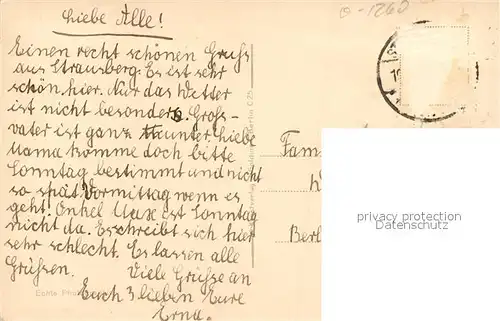 Liebe Alle!
Einen recht schönen Gruß
aus Strausberg. Es ist sehr
schön hier. Nur das Wetter
ist nicht besonders. Groß-
vater ist ganz munter. Liebe
Mama komme doch bitte
Sonntag bestimmt und nicht
so spät. Vormittag wenn es
geht. Onkel Max ist Sonntag
nicht da. Es schreibt sich hier
sehr schlecht. Es lassen alle
Grüßen. Viele Grüße an
Euch 3 lieben Eure
Erna.
Fam
Berl
privacy protection
Datenschutz
Echte Photo